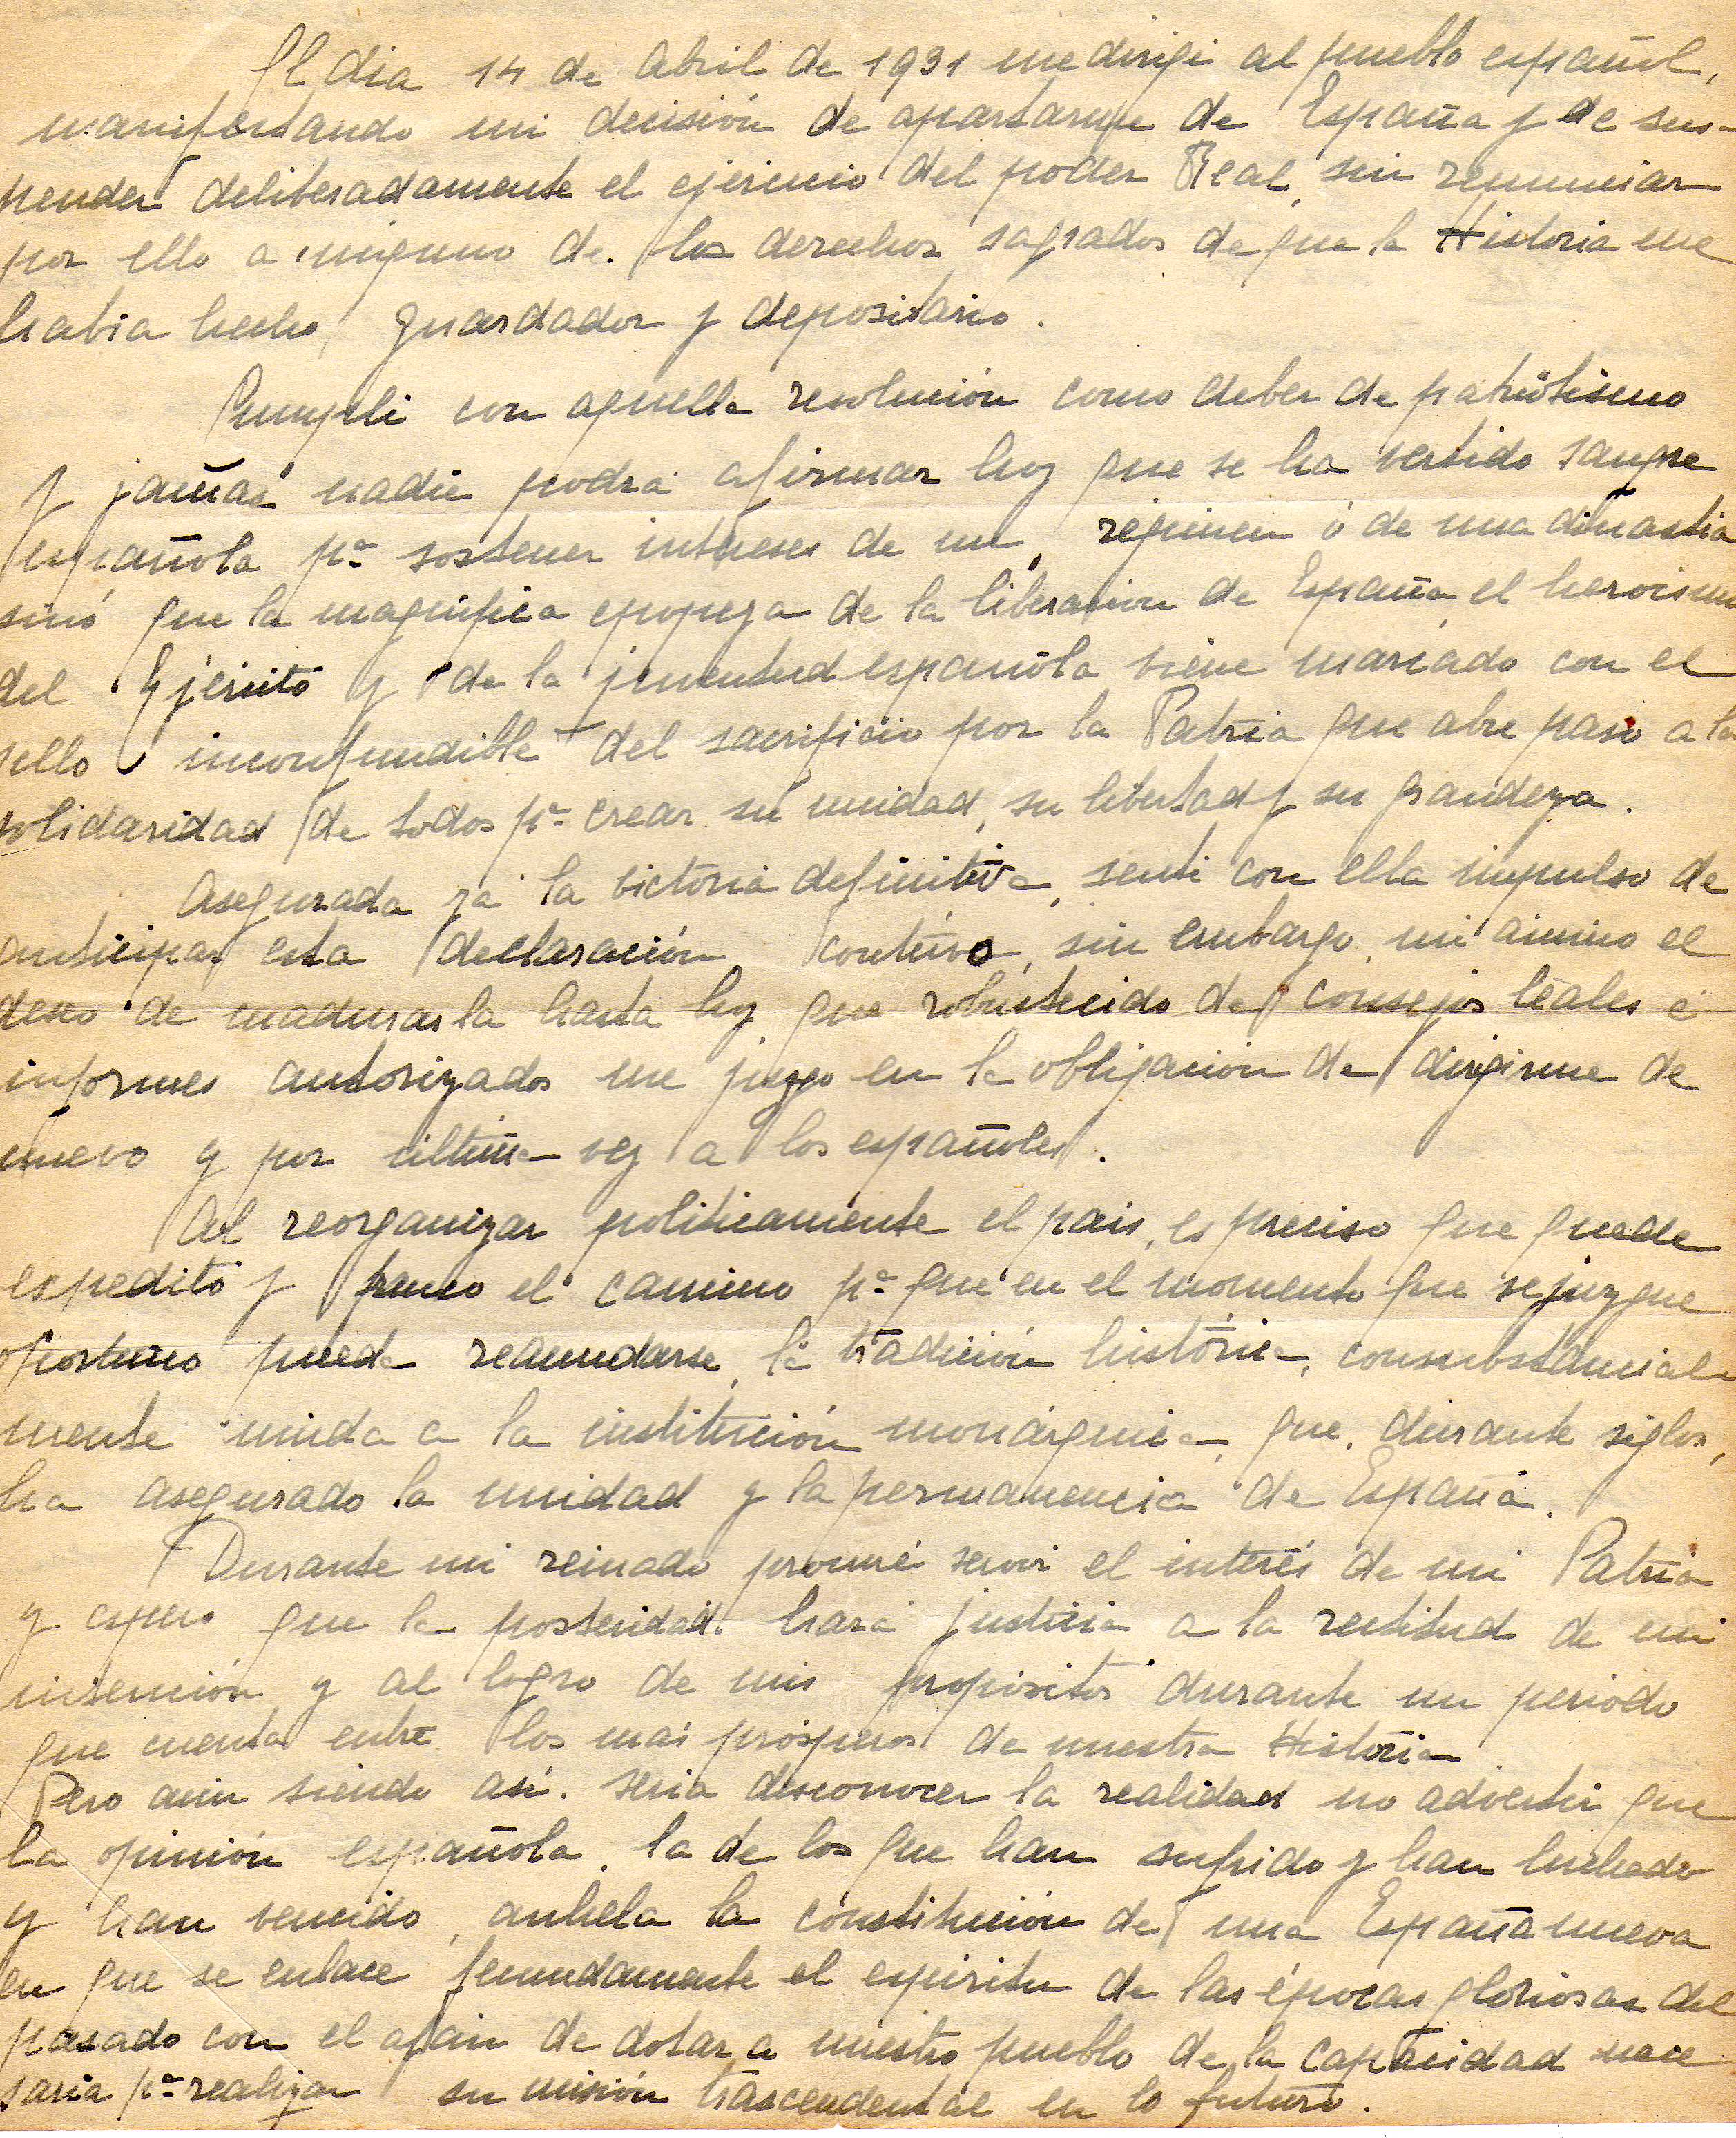 El dia 14 de Abril de 1931 me dirigi al pueblo español,
manifestando mi decisión de apartarme de España y de sus-
pender deliberadamente el ejercicio del poder Real, sin renunciar
por ello a ninguno de los derechos sagrados de que la Historia me
habia hecho, guardador y depositario.
Cumpli con aquella resolución como deber de patriótismo
y jamás nadie podrá afirmar hoy que se ha vertido sangre
española pª sostener intereses de un régimen ó de una dinastia
sinó que la magnifica epopeya de la liberación de España, el heroismo
del Ejército y de la juventud española viene marcado con el
sello inconfundible del sacrificio por la Patria que abre paso a la
solidaridad de todos pª crear su unidad, su libertad y su grandeza.
Asegurada ya la victoria definitiva, senti con ella impulso de
anticipar esta declaración, contuvo, sin embargo, mi ánimo el
deseo de madurarla hasta hoy, que robustecido de consejos leales é
informes autorizados me juzgo en la obligación de dirigirme de
nuevo y por última vez a los españoles.
Al reorganizar politicamente el pais, es preciso que quede
expedito y franco el camino pª que en el momento que se juzgue
oportuno pueda reanudarse, la tradición histórica, consubstancial-
mente unida a la institución monárquica, que, durante siglos,
ha asegurado la unidad y la permanencia de España.
Durante mi reinado procuré servir el interés de mi Patria
y espero que la posteridad hará justicia a la rectitud de mi
intención y al logro de mis propósitos durante un periodo
que cuenta entre los más prósperos de nuestra Historia
Pero aún siendo asi. seria desconocer la realidad no advertir que
la opinión española, la de los que han sufrido y han luchado
y han vencido, anhela la constitución de una España nueva
en que se enlace fecundamente el espiritu de las épocas gloriosas del
pasado con el afán de dotar a nuestro pueblo de la capacidad nece
saria pª realizar su misión trascendental en lo futuro.